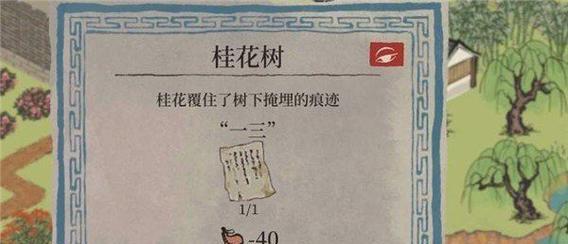 桂花树
桂花覆住了树下掩埋的痕迹
“一三”
1/1
-40